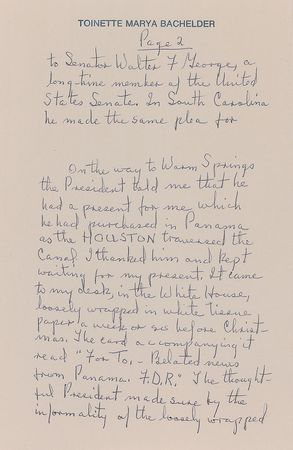 TOINETTE MARYA BACHELDER
Page 2
to Senator Walter F George, a
long-time member of the United
States Senate. In South Carolina
he made the same plea for
On the way to Warm Springs
the President told me that he
had a present for me which
he had purchased in Panama
as the HOUSTON traversed the
Canal. I thanked him and kept
waiting for my present. It came
to my desk, in the White House,
loosely wrapped in white tissue
paper a week or so before Christ-
mas. The card accompanying it
read "For To, - Belated news
from Panama. F.D.R." The thought-
ful President made sure by the
informality of the loosely wrapped